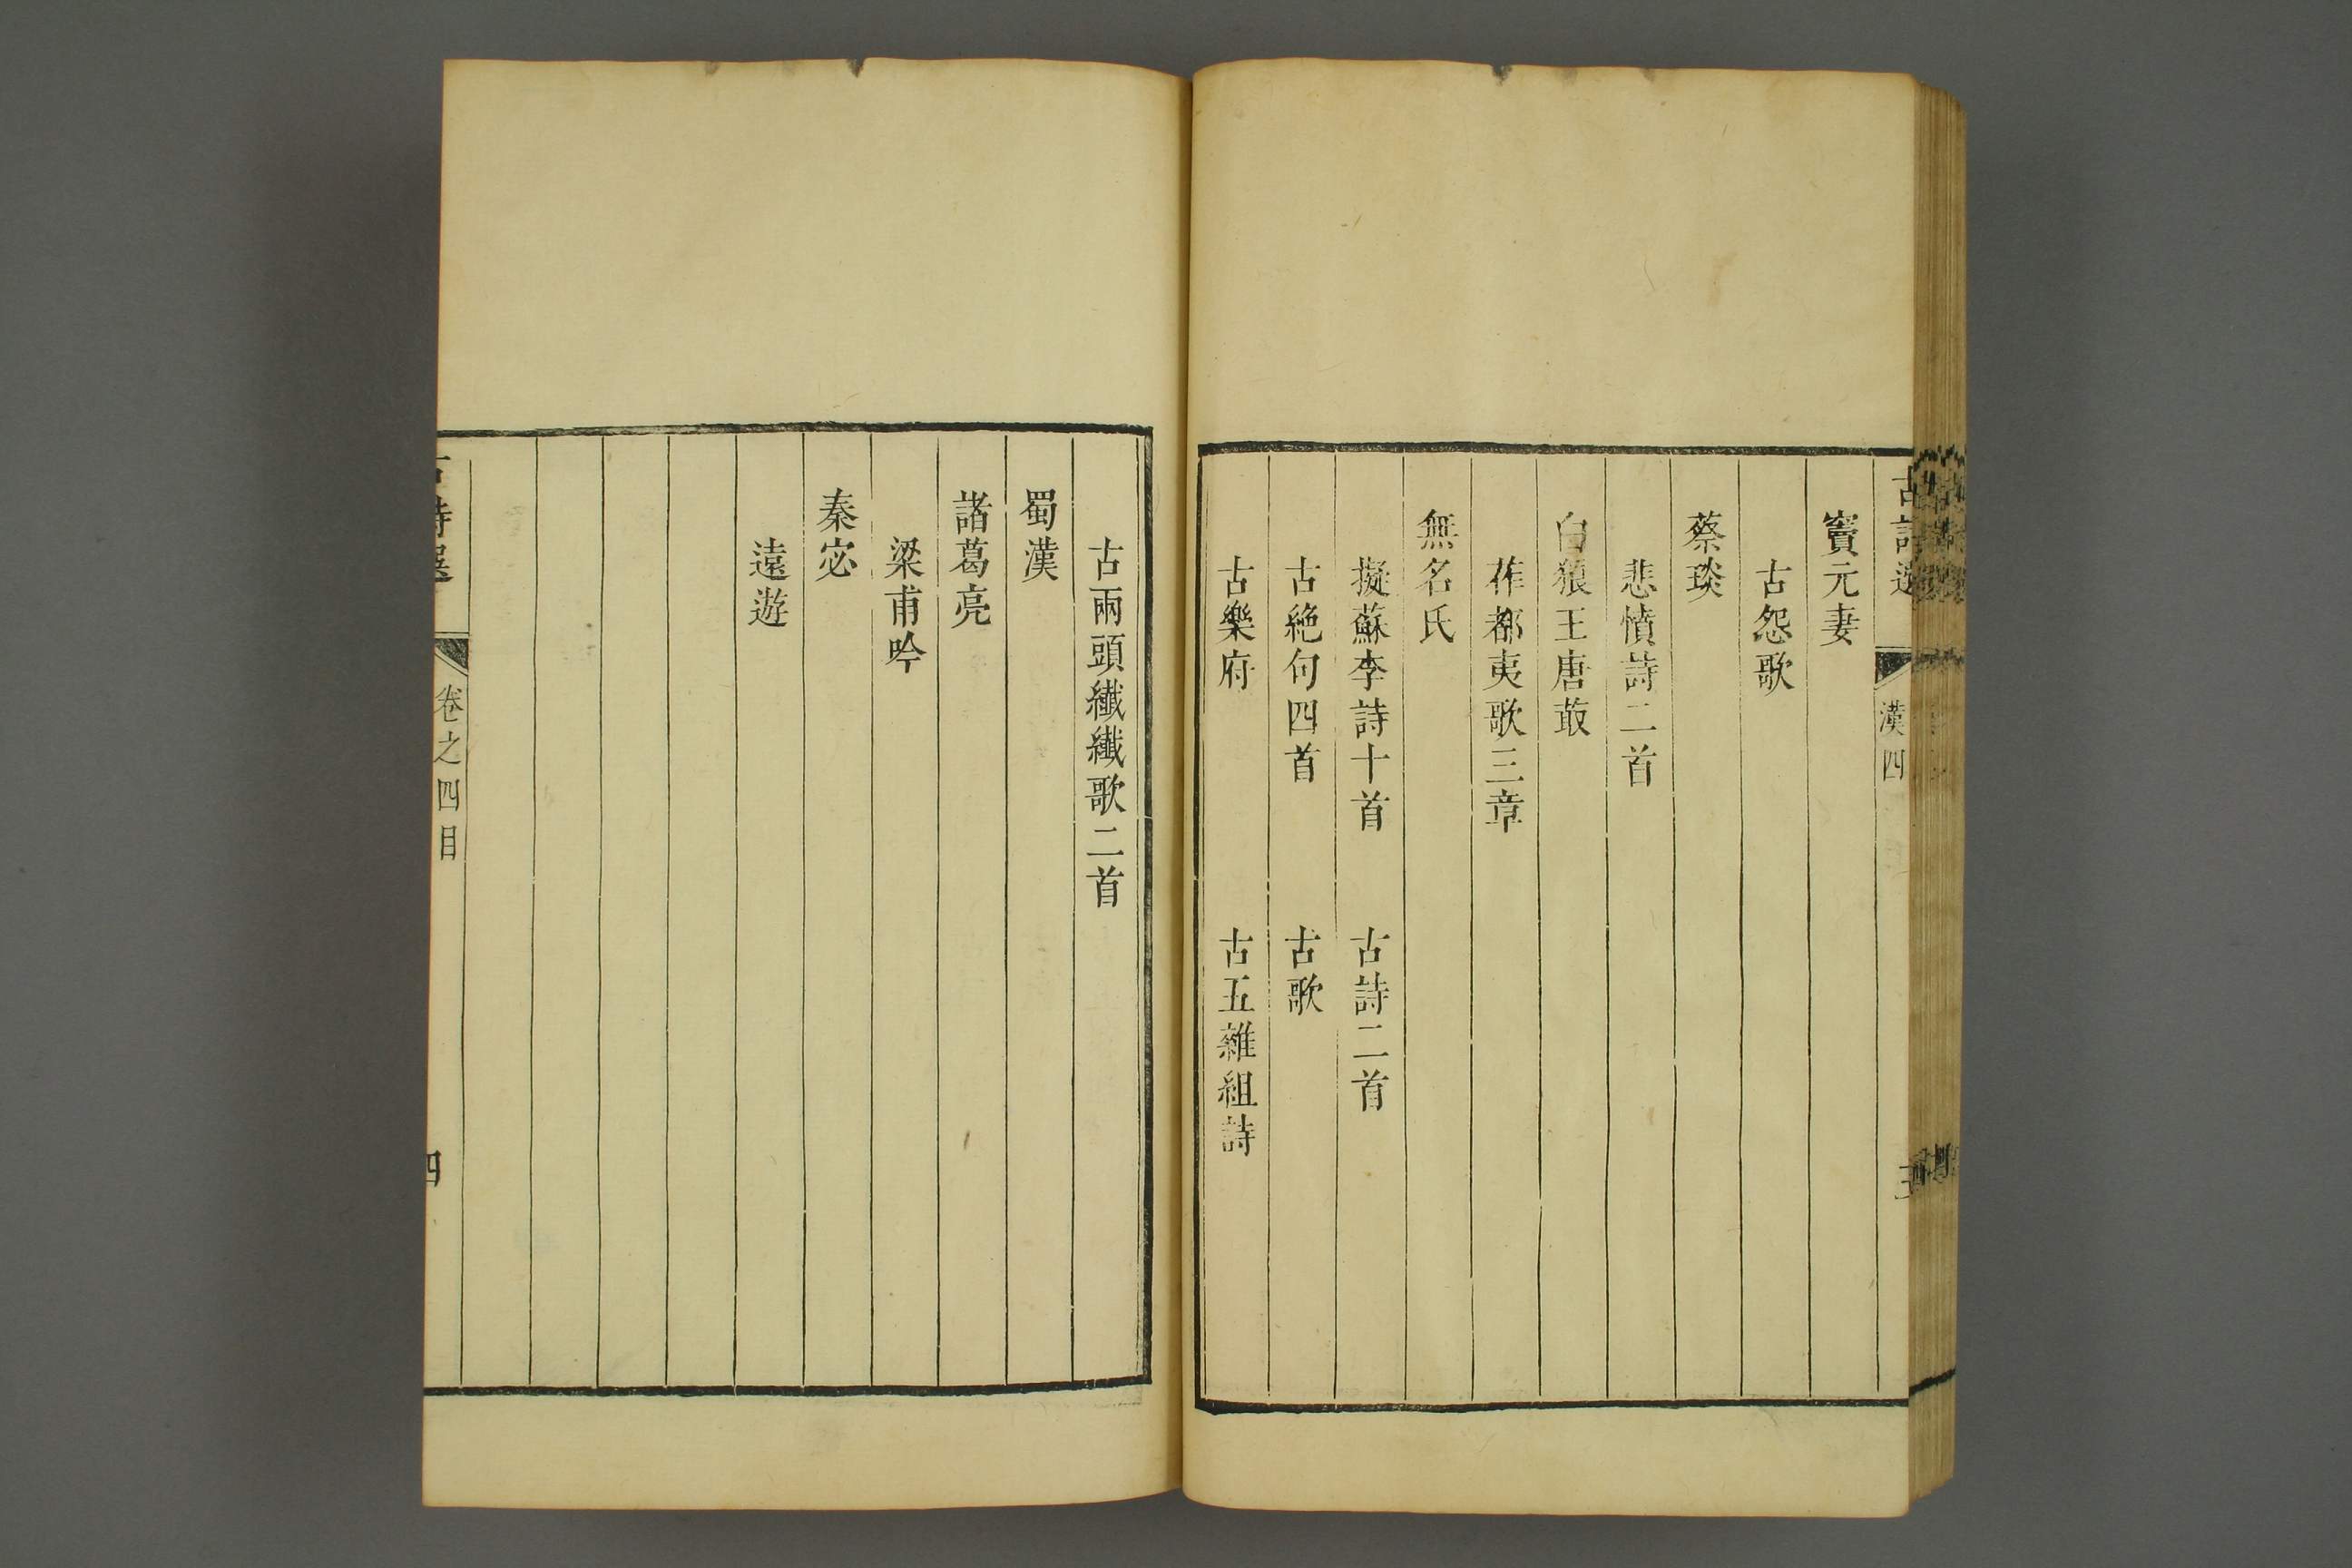 古詩選
漢四
竇元妻
古怨歌
蔡琰
悲憤詩二首
白狼王唐菆
莋都夷歌三章
無名氏
擬蘇李詩十首 古詩二首
古絕句四首 古歌
古樂府 古五雜組詩
古兩頭纖纖歌二首
蜀漢
諸葛亮
梁甫吟
秦宓
遠遊
古詩選
卷之四目
四